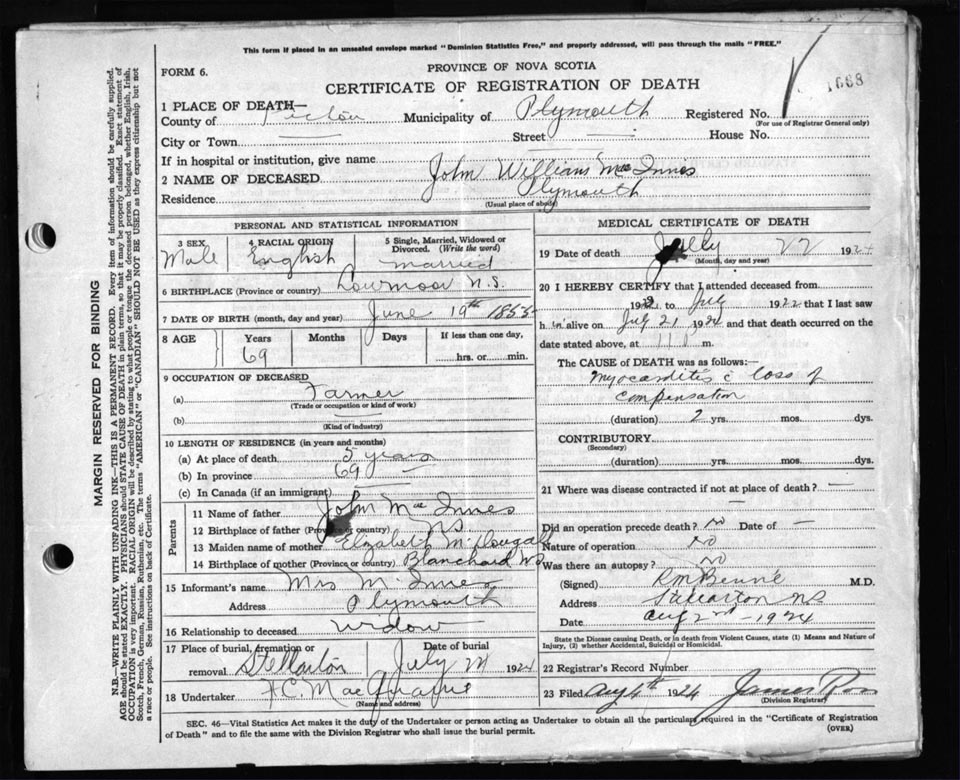 This form if placed in an unsealed envelope marked "Dominion Statistics Free," and properly addressed, will pass through the mails "FREE."
FORM 6.
PROVINCE OF NOVA SCOTIA
CERTIFICATE OF REGISTRATION OF DEATH
1668
1 PLACE OF DEATH—
County of Pictou Municipality of Plymouth Registered No.
(For use of Registrar General only)
City or Town — Street — House No.
If in hospital or institution, give name
2 NAME OF DECEASED John William MacInnes
Residence Plymouth
(Usual place of abode)
PERSONAL AND STATISTICAL INFORMATION
3 SEX Male
4 RACIAL ORIGIN English
5 Single, Married, Widowed or Divorced. (Write the word) married
6 BIRTHPLACE (Province or country) Lowmoor N.S.
7 DATE OF BIRTH (month, day and year) June 19th 1855
8 AGE Years 69 Months Days If less than one day, hrs. or min.
9 OCCUPATION OF DECEASED
(a) Farmer
(Trade or occupation or kind of work)
(b)
(Kind of industry)
10 LENGTH OF RESIDENCE (in years and months)
(a) At place of death 5 years
(b) In province 69
(c) In Canada (if an immigrant) —
Parents
11 Name of father John MacInnes
12 Birthplace of father (Province or country) NS
13 Maiden name of mother Elizabeth McDougall
14 Birthplace of mother (Province or country) Blanchard NS
15 Informant's name Mrs McInnes
Address Plymouth
16 Relationship to deceased widow
17 Place of burial, cremation or removal Stellarton
Date of burial July 192
18 Undertaker
(Name and address)
MEDICAL CERTIFICATE OF DEATH
19 Date of death July 22 1924
(Month, day and year)
20 I HEREBY CERTIFY that I attended deceased from
192 to July 1922 that I last saw
h im alive on July 21 1924 and that death occurred on the
date stated above, at 11 m.
The CAUSE of DEATH was as follows:—
myocarditis c loss of
compensation
(duration) 2 yrs. mos. dys.
CONTRIBUTORY
(Secondary)
(duration) yrs. mos. dys.
21 Where was disease contracted if not at place of death? —
Did an operation precede death? no Date of —
Nature of operation no
Was there an autopsy? no
(Signed) M.D.
Address Stellarton NS
Date Aug 2nd - 1924
State the Disease causing Death, or in death from Violent Causes, state (1) Means and Nature of Injury, (2) whether Accidental, Suicidal or Homicidal.
22 Registrar's Record Number
23 Filed Aug 4th 1924 James Ross
(Division Registrar)
SEC. 46—Vital Statistics Act makes it the duty of the Undertaker or person acting as Undertaker to obtain all the particulars required in the "Certificate of Registration
of Death" and to file the same with the Division Registrar who shall issue the burial permit.
(OVER)
MARGIN RESERVED FOR BINDING
N.B.—WRITE PLAINLY WITH UNFADING INK—THIS IS A PERMANENT RECORD. Every item of information should be carefully supplied.
AGE should be stated EXACTLY. PHYSICIANS should STATE CAUSE OF DEATH in plain terms, so that it may be properly classified. Exact statement of
OCCUPATION is very important. RACIAL ORIGIN will be described by stating to what people or tongue the deceased person belonged, whether English, Irish,
Scotch, French, German, Russian, Ruthenian, etc. The terms "AMERICAN" or "CANADIAN" SHOULD NOT BE USED as they express citizenship but not
a race or people. See instructions on back of Certificate.